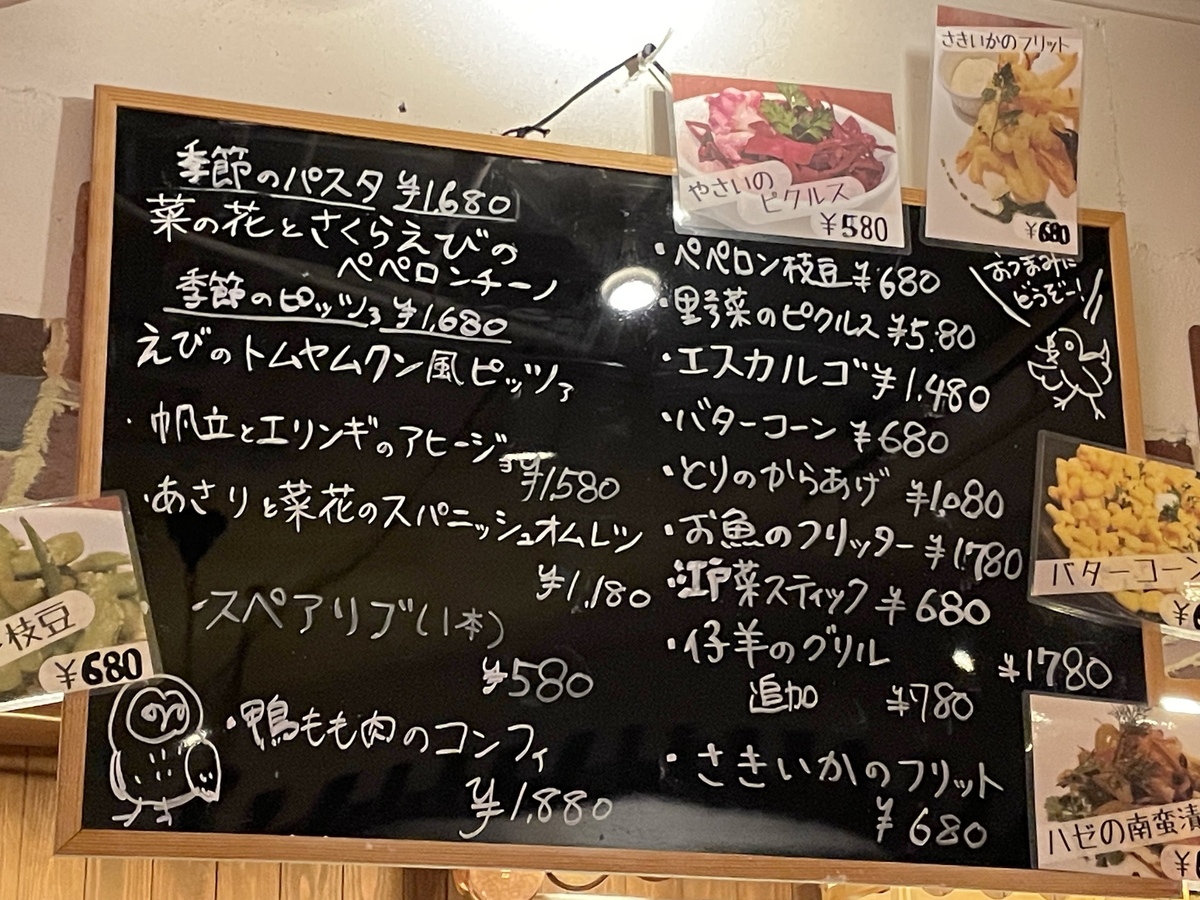 季節のパスタ ¥1,680
菜の花とさくらえびの
ペペロンチーノ
季節のピッツァ ¥1,680
えびのトムヤムクン風ピッツァ
・帆立とエリンギのアヒージョ
¥1,580
・あさりと菜花のスパニッシュオムレツ
¥1,180
・スペアリブ(1本)
¥580
・鴨もも肉のコンフィ
¥1,880
枝豆
¥680
やさいの
ピクルス
¥580
さきいかのフリット
¥680
おつまみに
どうぞー!
・ペペロン枝豆 ¥680
・野菜のピクルス ¥5.80
・エスカルゴ ¥1.480
・バターコーン ¥680
・とりのからあげ ¥1.080
・お魚のフリッター ¥1.780
・江戸菜スティック ¥680
・仔羊のグリル ¥1780
追加 ¥780
・さきいかのフリット
¥680
バターコーン
ハゼの南蛮漬